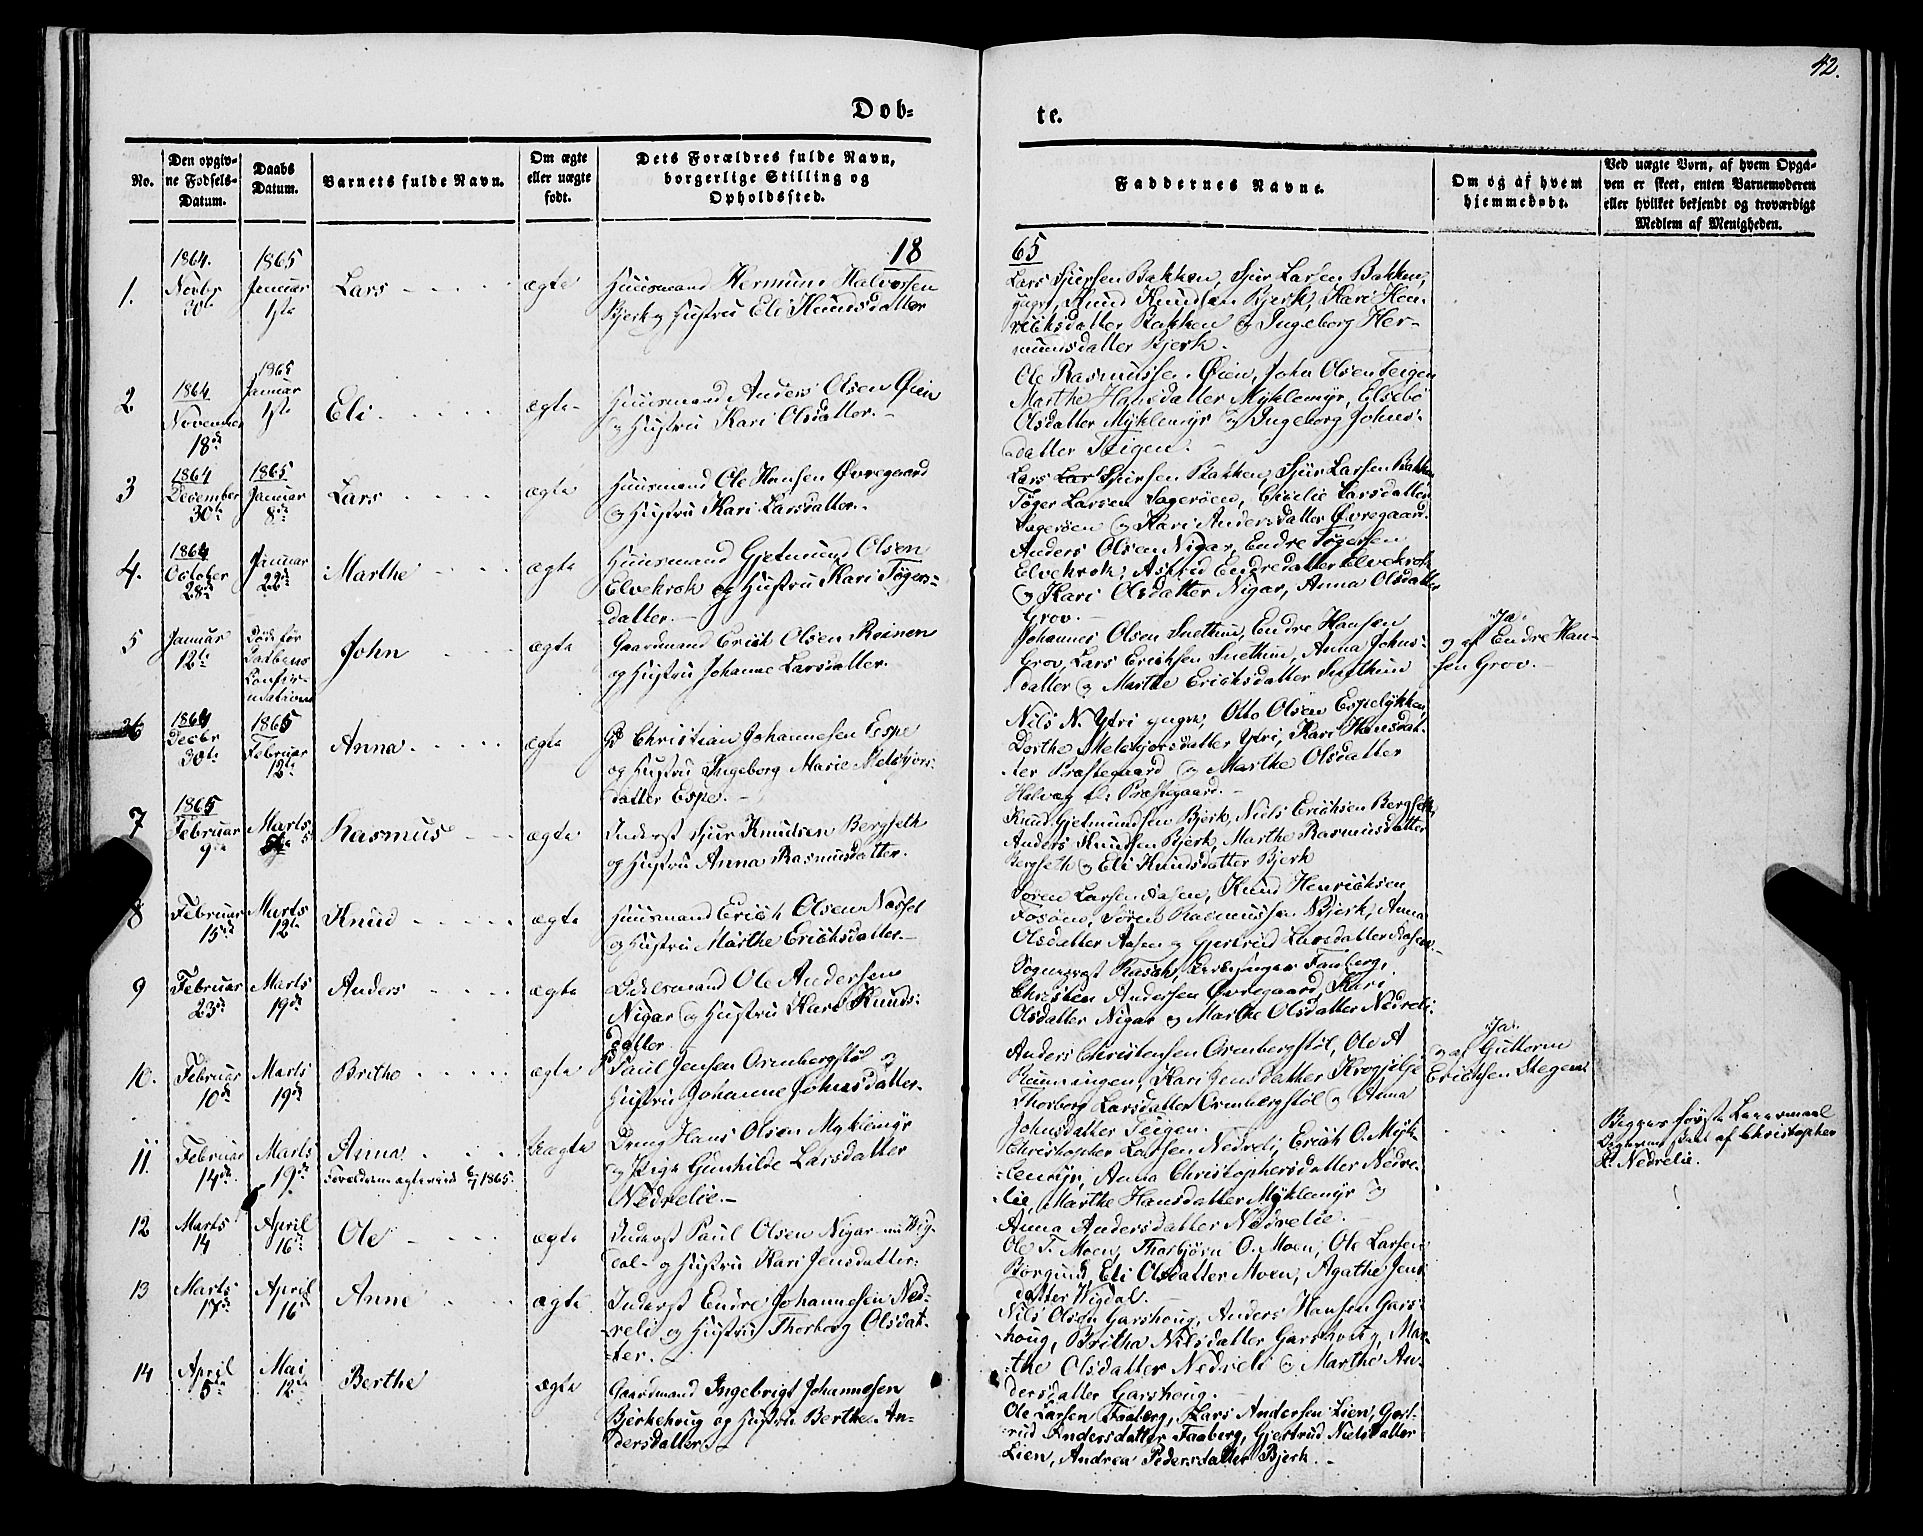 42.
Døb-
te.
No.
Den opgiv-
ne Fødsels-
Datum.
Daabs
Datum.
Barnets fulde Navn.
Om ægte
eller uægte
født.
Dets Forældres fulde Navn,
borgerlige Stilling og
Opholdssted.
Faddernes Navne.
Om og af hvem
hjemmedøbt.
Ved uægte Børn, af hvem Opga-
ven er skeet, enten Barnemoderen
eller hvilket bekjendt og troværdigt
Medlem af Menigheden.
18
65
1.
1864.
Novbr
30te
1865
Januar
1ste
Lars
ægte
Huusmand Hermund Halvorsen
Bjerk og Hustru Eli Knudsdatter
Lars Sjursen Bakken, Sjur Larsen Bakken,
yngre, Knud Knudsen Bjerk, Kari Hen-
richsdatter Bakken og Ingeborg Her-
mundsdatter Bjerk.
2
1864
November
18de
1865
Januar
1ste
Eli
ægte
Huusmand Anders Olsen Øien
og Hustru Kari Olsdatter.
Ole Rasmussen Øien, John Olsen Teigen
Marthe Hansdatter Myklemyr, Elsebe
Olsdatter Myklemyr og Ingeborg Johns-
datter Teigen.
3
1864
December
30te
1865
Januar
8de
Lars
ægte
Huusmand Ole Hansen Øvregaard
og Hustru Kari Larsdatter.
Lars Lar Sjursen Bakken, Sjur Larsen Bakken
Tøger Larsen Sagerøen, Cicelie Larsdatter
Sagerøen og Kari Andersdatter Øvregaard.
4.
1864
October
28de
Januar
22de
Marthe
ægte
Huusmand Gjetmund Olsen
Elvekrok og Hustru Kari Tøgers-
datter.
Anders Olsen Nigar, Endre Tøgersen
Elvekrok, Astrid Endredatter Elvekrok
og Kari Olsdatter Nigar, Anna Olsdatter
Grov.
5
Januar
12te
Død før
Daabens
Confir-
mation
John
ægte
Gaardmand Erich Olsen Reinen
og Hustru Johanne Larsdatter.
Johannes Olsen Snethun, Endre Hansen
Grov, Lars Erichsen Snethun, Anna Johns-
datter og Marthe Erichsdatter Snethun
Ja.
og af Endre Han-
sen Grov.
6
1864
Decbr
30te
1865
Februar
12te
Anna
ægte
Christian Johannesen Espe
og Hustru Ingeborg Marie Melchiors-
datter Espe.
Nils N. Ytri yngre, Otto Olsen Espelykken
Dorthe Melchiorsdatter Ytri, Kari Hansdat-
ter Præstegaard og Marthe Olsdatter
Præstegaard.
7
1865
Februar
9de
Marts
5
Rasmus
ægte
Inderst Sjur Knudsen Bergseth
og Hustru Anna Rasmusdatter.
Knud Gjetmundsen Bjerk, Niels Erichsen Bergseth,
Anders Knudsen Bjerk, Marthe Rasmusdatter
Bergseth og Eli Knudsdatter Bjerk
8
Februar
15de
Marts
12te
Knud
ægte
Huusmand Erich Olsen Nasset
og Hustru Marthe Erichsdatter.
Søren Larsen Aasen, Knud Henrichsen
Fosøen, Søren Rasmussen Bjerk, Anna
Olsdatter Aasen og Gjertrud Larsdatter Aasen.
9
Februar
23de
Marts
19de
Anders
ægte
Ole Andersen
Nigar og Hustru Kari Knuds-
datter
Sogneprest Rasch, Kirkesanger Faaberg,
Christen Andersen Øvregaard, Kari
Olsdatter Nigar og Marthe Olsdatter Nedreli.
10.
Februar
10de
Marts
19de
Brithe
ægte
Paul Jensen Ormbergstøl og
Hustru Johanne Johnsdatter.
Anders Christensen Ormbergstøl, Ole A
Rønningen, Kari Jensdatter
Thorborg Larsdatter Ormbergstøl og Anna
Johnsdatter Teigen.
Ja.
og af Guttorm
Erichsen
11.
Februar
14de
Marts
19de
Anna
Forældrene ægteviede 6/7 1865.
uægte
Dreng Hans Olsen Myklemyr
og Pige Gunhilde Larsdatter
Nedrelie.
Christopher Larsen Nedreli, Erich O. Myk-
lemyr, Anna Christophersdatter Nedre-
lie, Marthe Hansdatter Myklemyr og
Anna Andersdatter Nedrelie.
Begges første Leiermaal
Opgaven skeet af Christopher
L. Nedrelie.
12
Marts
14
April
16de
Ole
ægte
Inderst Paul Olsen Nigar nu Vig-
dal og Hustru Kari Jensdatter.
Ole T. Moen, Thorbjørn O. Moen, Ole Larsen
Borgund, Eli Olsdatter Moen, Agathe Jens-
datter Wigdal.
13
Marts
17de
April
16de
Anne
ægte
Inderst Endre Johannesen Ned-
reli og Hustru Thorborg Olsdat-
ter.
Nils Olsen Garshoug, Anders Hansen Gars-
houg, Britha Nilsdatter Garshoug, Mar-
the Olsdatter Nedreli og Marthe An-
dersdatter Garshoug.
14
April
5te
Mai
12te
Berthe
ægte
Gaardmand Ingebrigt Johannesen
Bjerkehoug og Hustru Berthe An-
dersdatter.
Ole Larsen Faaberg, Lars Andersen Lien, Gjert-
rud Andersdatter Faaberg, Gjertrud Nielsdatter
Lien, Andrea Pedersdatter Bjerk.